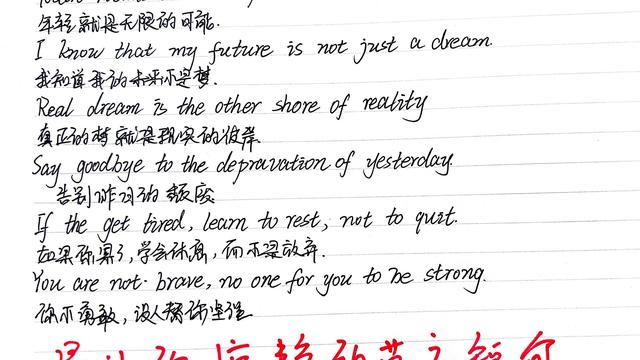 年轻就是无限的可能.
I know that my future is not just a dream.
我知道我的未来不是梦.
Real dream is the other shore of reality
真正的梦就是现实的彼岸.
Say goodbye to the depravation of yesterday.
告别昨日的颓废
If the get tired, learn to rest, not to quit.
如果你累了,学会休息,而不是放弃.
You are not brave, no one for you to be strong.
你不勇敢,没人替你坚强